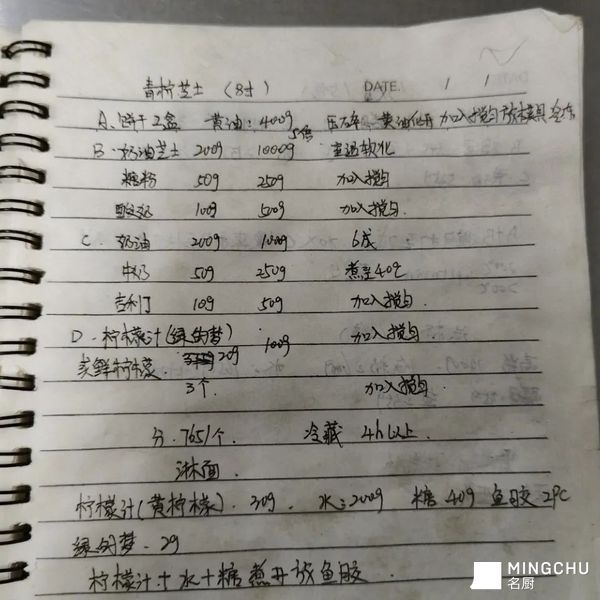 青柠芝士 (8寸) DATE. / /
A. 饼干2盒 黄油:400g 压碎 黄油化开 加入搅匀 放模具 冷冻
5倍
B. 奶油芝士 200g 1000g 室温软化
糖粉 50g 250g 加入搅匀
酸奶 100g 500g 加入搅匀
C. 奶油 200g 1000g 6成
牛奶 50g 250g 煮至40℃
吉利丁 10g 50g 加入搅匀.
D. 柠檬汁(绿的梦) 20g 100g 加入搅匀.
鲜柠檬 3个. 加入搅匀
分. 765/个. 冷藏 4h以上.
淋面.
柠檬汁(黄柠檬). 30g. 水:200g 糖 40g 鱼胶 2PC
绿的梦. 2g
柠檬汁+水+糖煮开放鱼胶.
MINGCHU
名厨